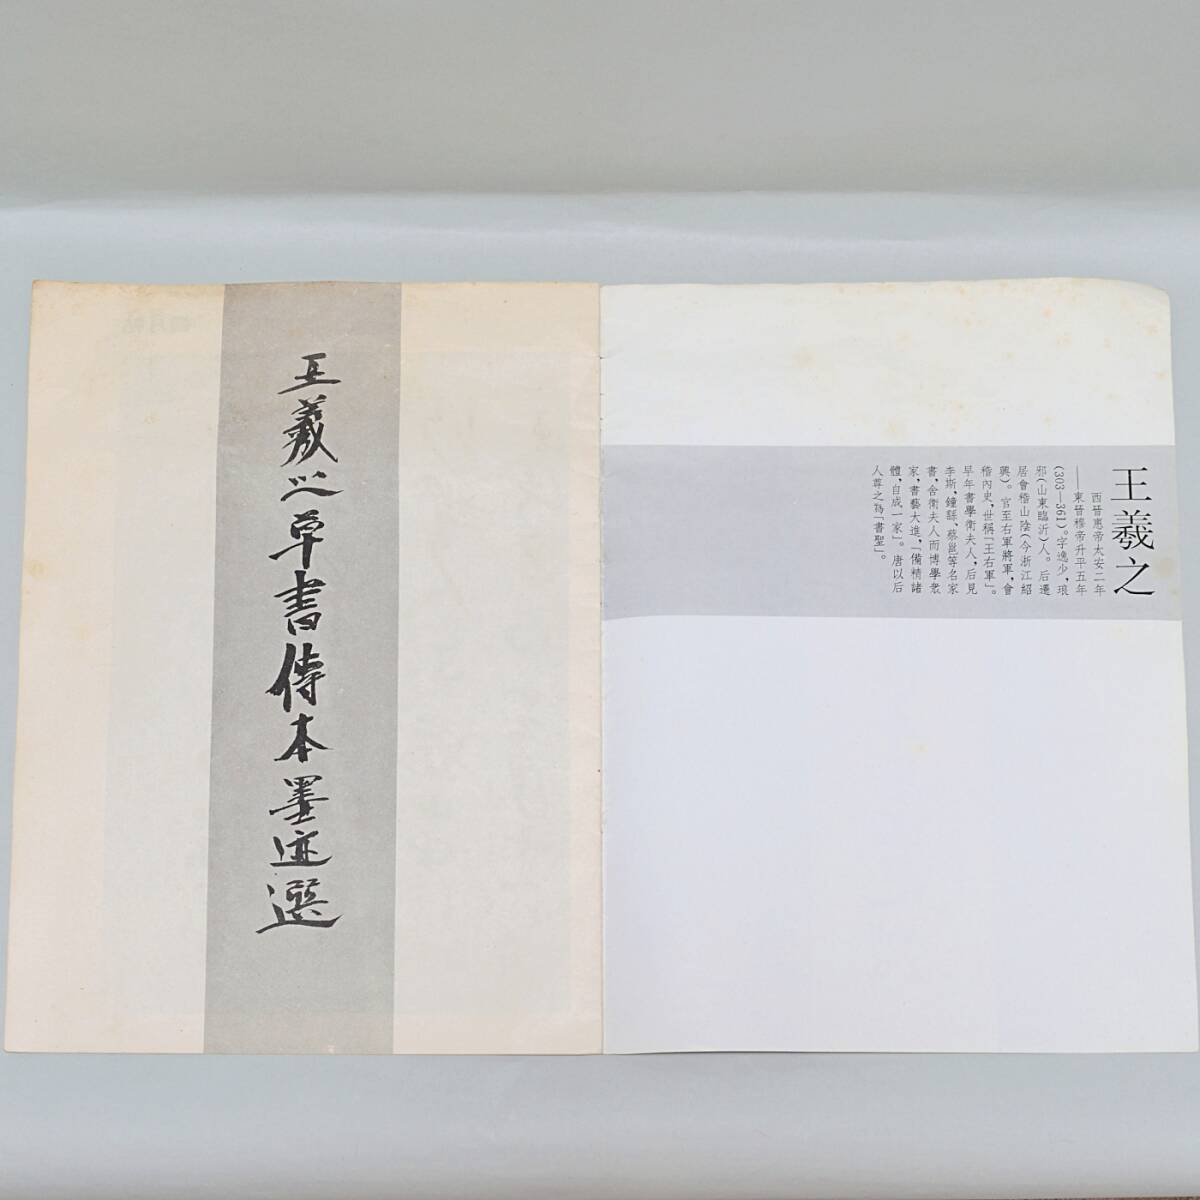 王羲之
西晉惠帝太安二年
——東晉穆帝升平五年
(303—361)。字逸少,琅
邪(山東臨沂)人。后遷
居會稽山陰(今浙江紹
興)。官至右軍將軍,會
稽內史,世稱「王右軍」。
早年書學衛夫人,后見
李斯、鐘繇、蔡邕等名家
書,舍衛夫人而博學衆
家,書藝大進,「備精諸
體,自成一家」。唐以后
人尊之爲「書聖」。
王羲之草書傳本墨迹選